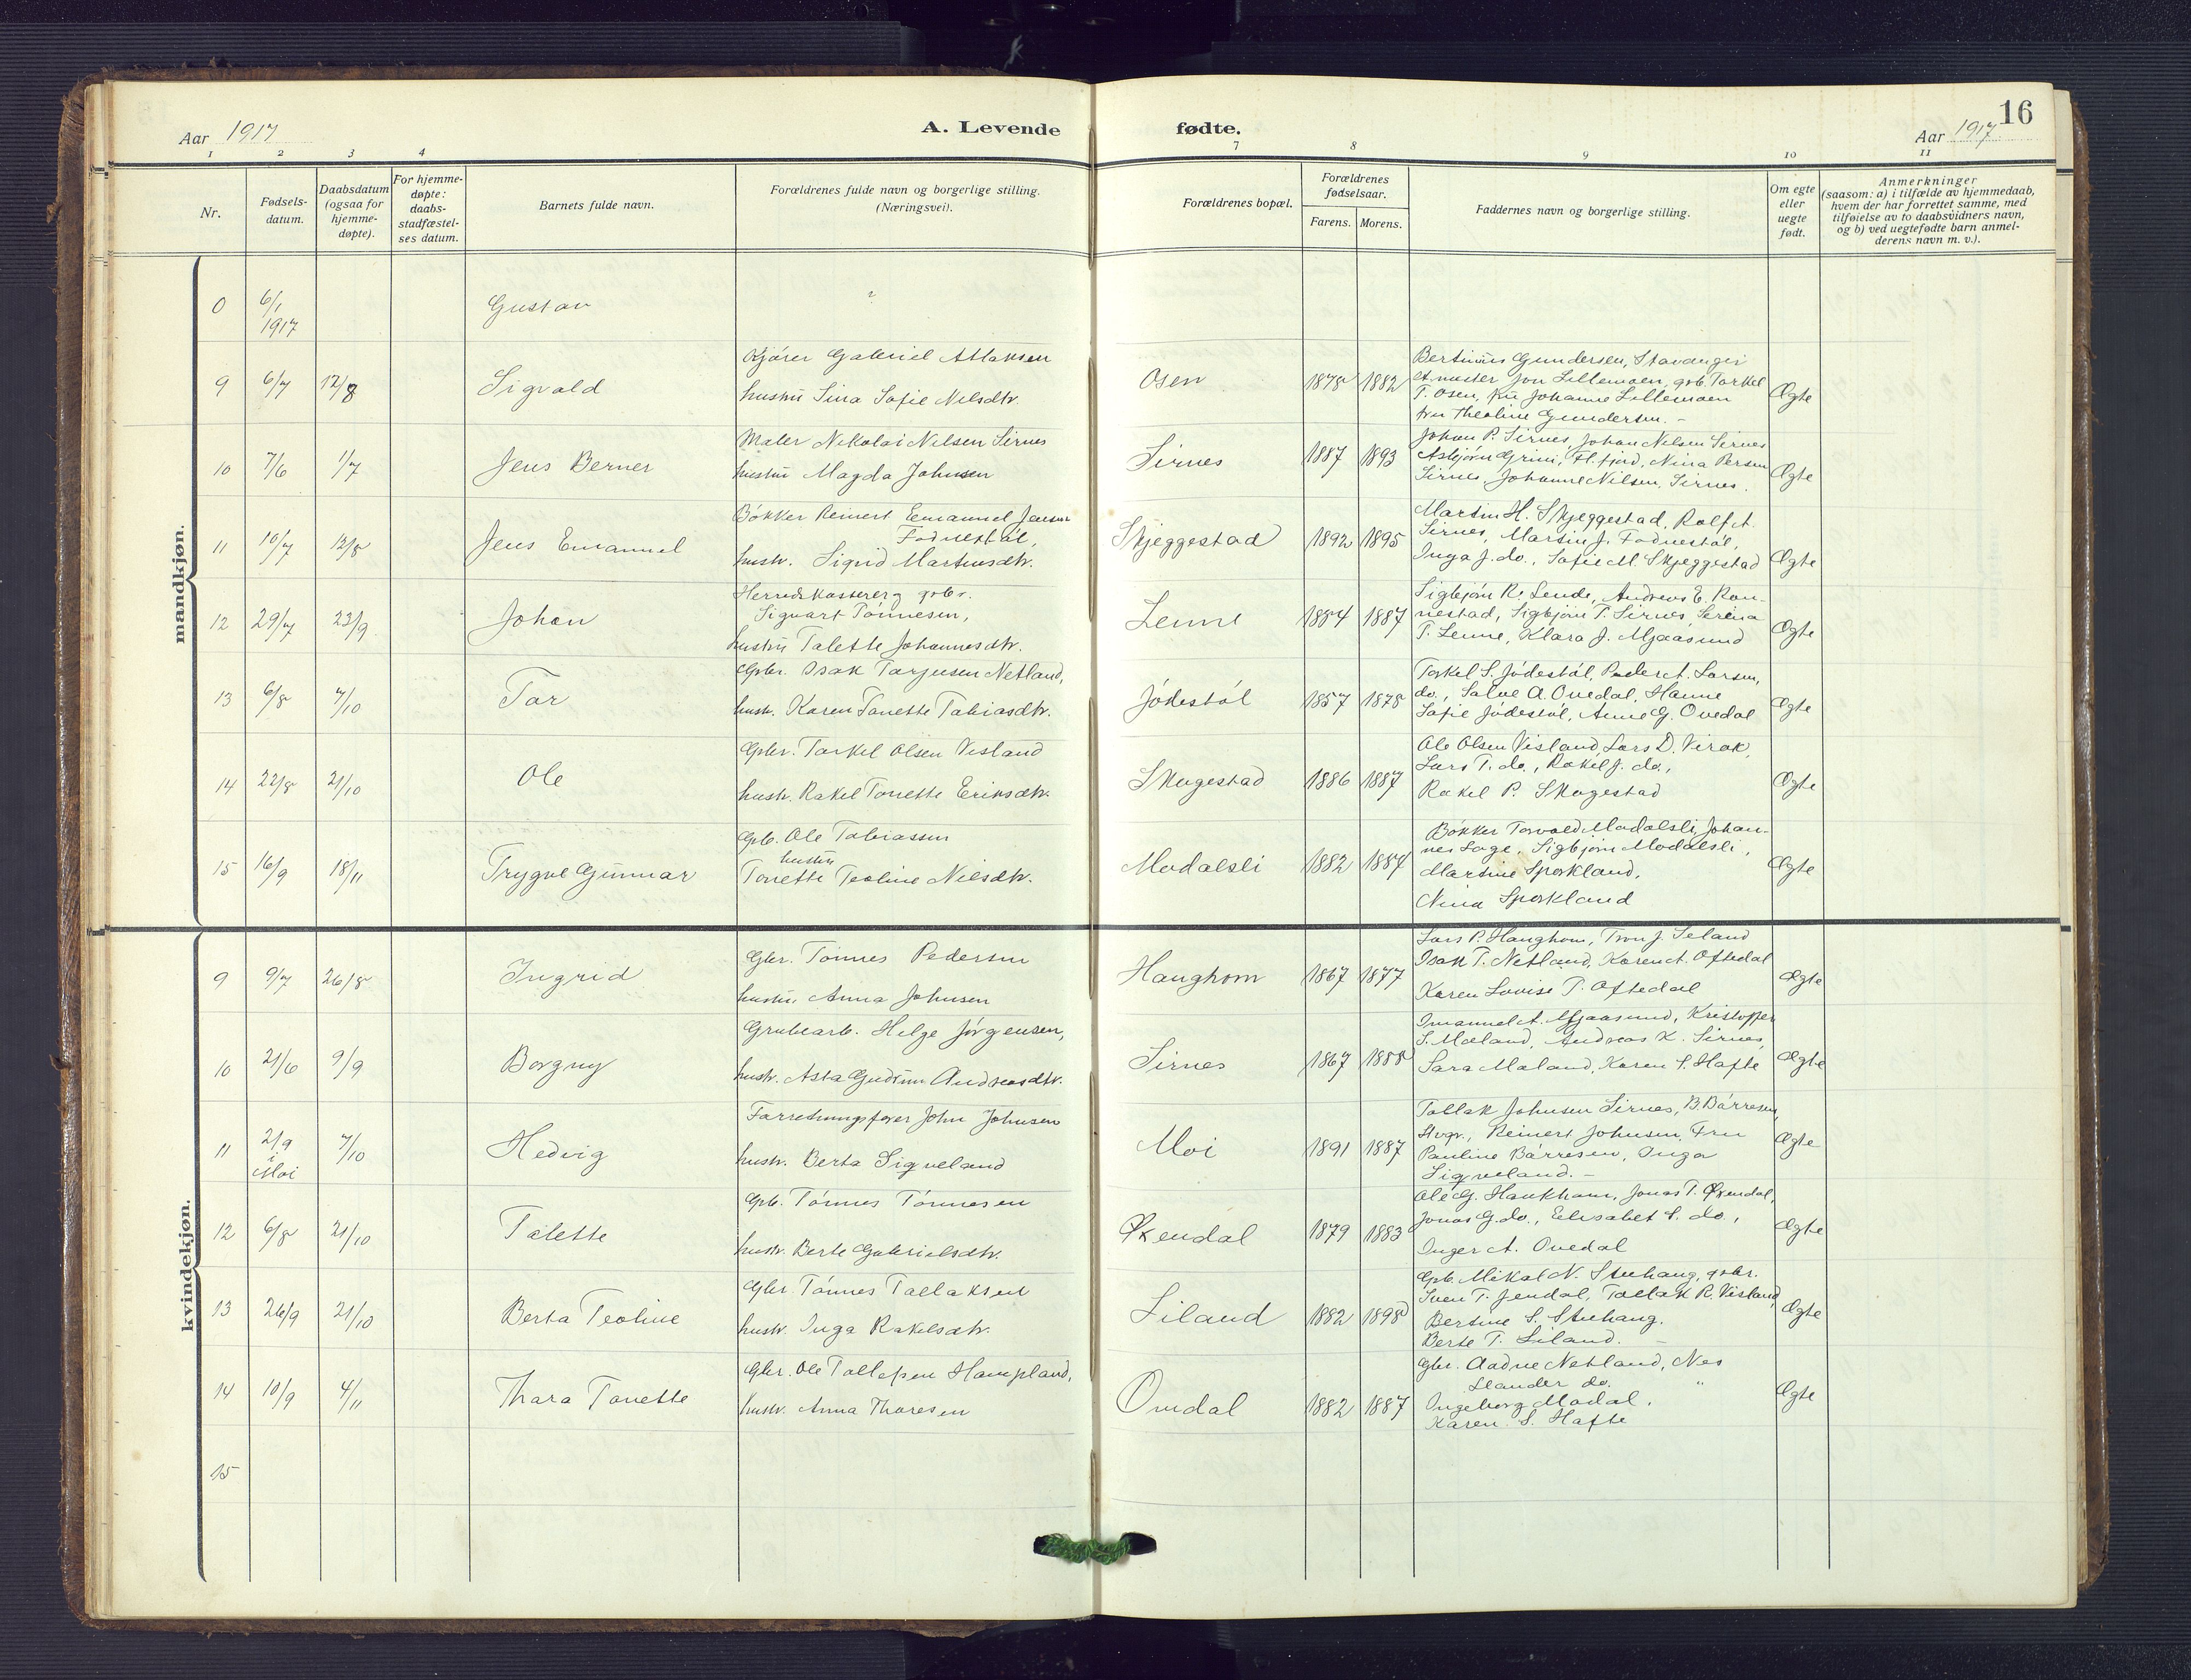 16
Aar 1917
A. Levende fødte.
Aar 1917
1 2 3 4 7 8 9 10 11
Nr.
Fødsels-
datum.
Daabsdatum
(ogsaa for
hjemme-
døpte).
For hjemme-
døpte:
daabs-
stadfæstel-
ses datum.
Barnets fulde navn.
Forældrenes fulde navn og borgerlige stilling.
(Næringsvei).
Forældrenes bopæl.
Forældrenes
fødselsaar.
Farens. Morens.
Faddernes navn og borgerlige stilling.
Om egte
eller
uegte
født.
Anmerkninger
(saasom: a) i tilfælde av hjemmedaab,
hvem der har forrettet samme, med
tilføielse av to daabsvidners navn,
og b) ved uegtefødte barn anmel-
derens navn m. v.).
mandkjøn.
0 6/1
1917
Gustav
?
9 6/7 12/8 Sigvald
Kjører Gabriel Atlaksen
hustru Sina Sofie Nilsdtr.
Osen 1878 1882
Bertinius Gundersen, Stavanger
Jon Lillemoen, grb. Torkel
T. Osen, fru Johanne Lillemoen
fru Theoline Gundersen. -
Ægte
10 7/6 1/7 Jens Berner
Maler Nikolai Nilsen Sirnes
hustru Magda Johnsen
Sirnes 1887 1893
Johan P. Sirnes, Johan Nilsen Sirnes
Asbjørn Grini, Fl.fjord, Nina Persen
Sirnes, Johanne Nilsen, Sirnes.
Ægte
11 10/7 12/8 Jens Emanuel
Bøkker Reinert Emanuel Jensen
Fodnestøl,
hustr. Sigrid Martinsdtr.
Skjeggestad 1892 1895
Martin H. Skjeggestad, Rolf A.
Sirnes, Martin J. Fodnestøl,
Inga J. do., Sofie M. Skjeggestad
Ægte
12 29/7 23/9 Johan
Herredskasserer og grbr.
Sigvart Tønnesen,
hustru Talette Johannesdtr.
Lenne 1884 1887
Sigbjørn R. Lende, Andreas E. Ron-
nestad, Sigbjørn T. Sirnes, Serina
T. Lenne, Klara J. Mjaasund
Ægte
13 6/8 7/10 Tor
Gbr. Isak Tarjeisen Netland,
hustr. Karen Tonette Tobiasdtr.
Jødestøl 1857 1878
Torkel S. Jødestøl, Peder A. Larsen,
do., Salve A. Ovedal, Hanne
Sofie Jødestøl, Anne G. Ovedal
Ægte
14 22/8 21/10 Ole
Gbr. Torkel Olsen Visland
hustr. Rakel Tonette Eriksdtr.
Skogestad 1886 1887
Ole Olsen Visland, Lars D. Virak,
Lars T. do., Rakel J. do.,
Rakel P. Skogestad
Ægte
15 16/9 18/11 Trygve Gunnar
Gb. Ole Tobiassen
hustru
Tonette Teoline Nilsdtr.
Modalsli 1882 1884
Bøkker Torvald Modalsli, Johan-
nes Lage, Sigbjørn Modalsli,
Martine Sporkland,
Nina Sporkland
Ægte
kvindekjøn.
9 9/7 26/8 Ingrid
Gbr. Tønnes Pedersen
hustru, Anna Johnsen
Haughom 1867 1877
Lars P. Haughom, Tron J. Seland
Isak T. Netland, Karen A. Oftedal
Karen Lovise T. Oftedal
Ægte
10 21/6 9/9 Borgny
Grubearb. Helge Jørgensen,
hustr. Asta Gudrun Andreasdtr.
Sirnes 1867 1888
Imanuel A. Mjaasund, Kristoffer
S. Moland, Andreas K. Sirnes,
Sara Moland, Karen S. Hafte
Ægte
11 2/9
i
Moi
7/10 Hedvig
Forretningsfører John Johnsen
hustr. Berta Sigveland
Moi 1891 1887
Tollak Johnsen Sirnes, B. Børresen,
Stvgr., Reinert Johnsen, Fru
Pauline Børresen, Inga
Sigveland. -
Ægte
12 6/8 21/10 Talette
Gb. Tønnes Tønnesen
hustr. Berte Gabrielsdtr.
Øxendal 1879 1883
Ole G. Haukham, Jonas T. Øxendal,
Jonas G. do., Elisabet S. do.,
Inger A. Ovedal
Ægte
13 26/9 21/10 Berta Teoline
Gbr. Tønnes Tollaksen
hustr. Inga Rakelsdtr.
Liland 1882 1898
Gb. Mikal N. Stuhaug, gbr.
Sven T. Jendal, Tollak R. Visland,
Bertine S. Stuhaug.
Berte T. Liland. -
Ægte
14 10/9 4/11 Thara Tonette
Gbr. Ole Tollefsen Hampland,
hustr. Anna Thoresen
Ovedal 1882 1887
Gbr. Aadne Netland, Nes
Leander do. "
Ingeborg Modal,
Karen S. Hafte
Ægte
15